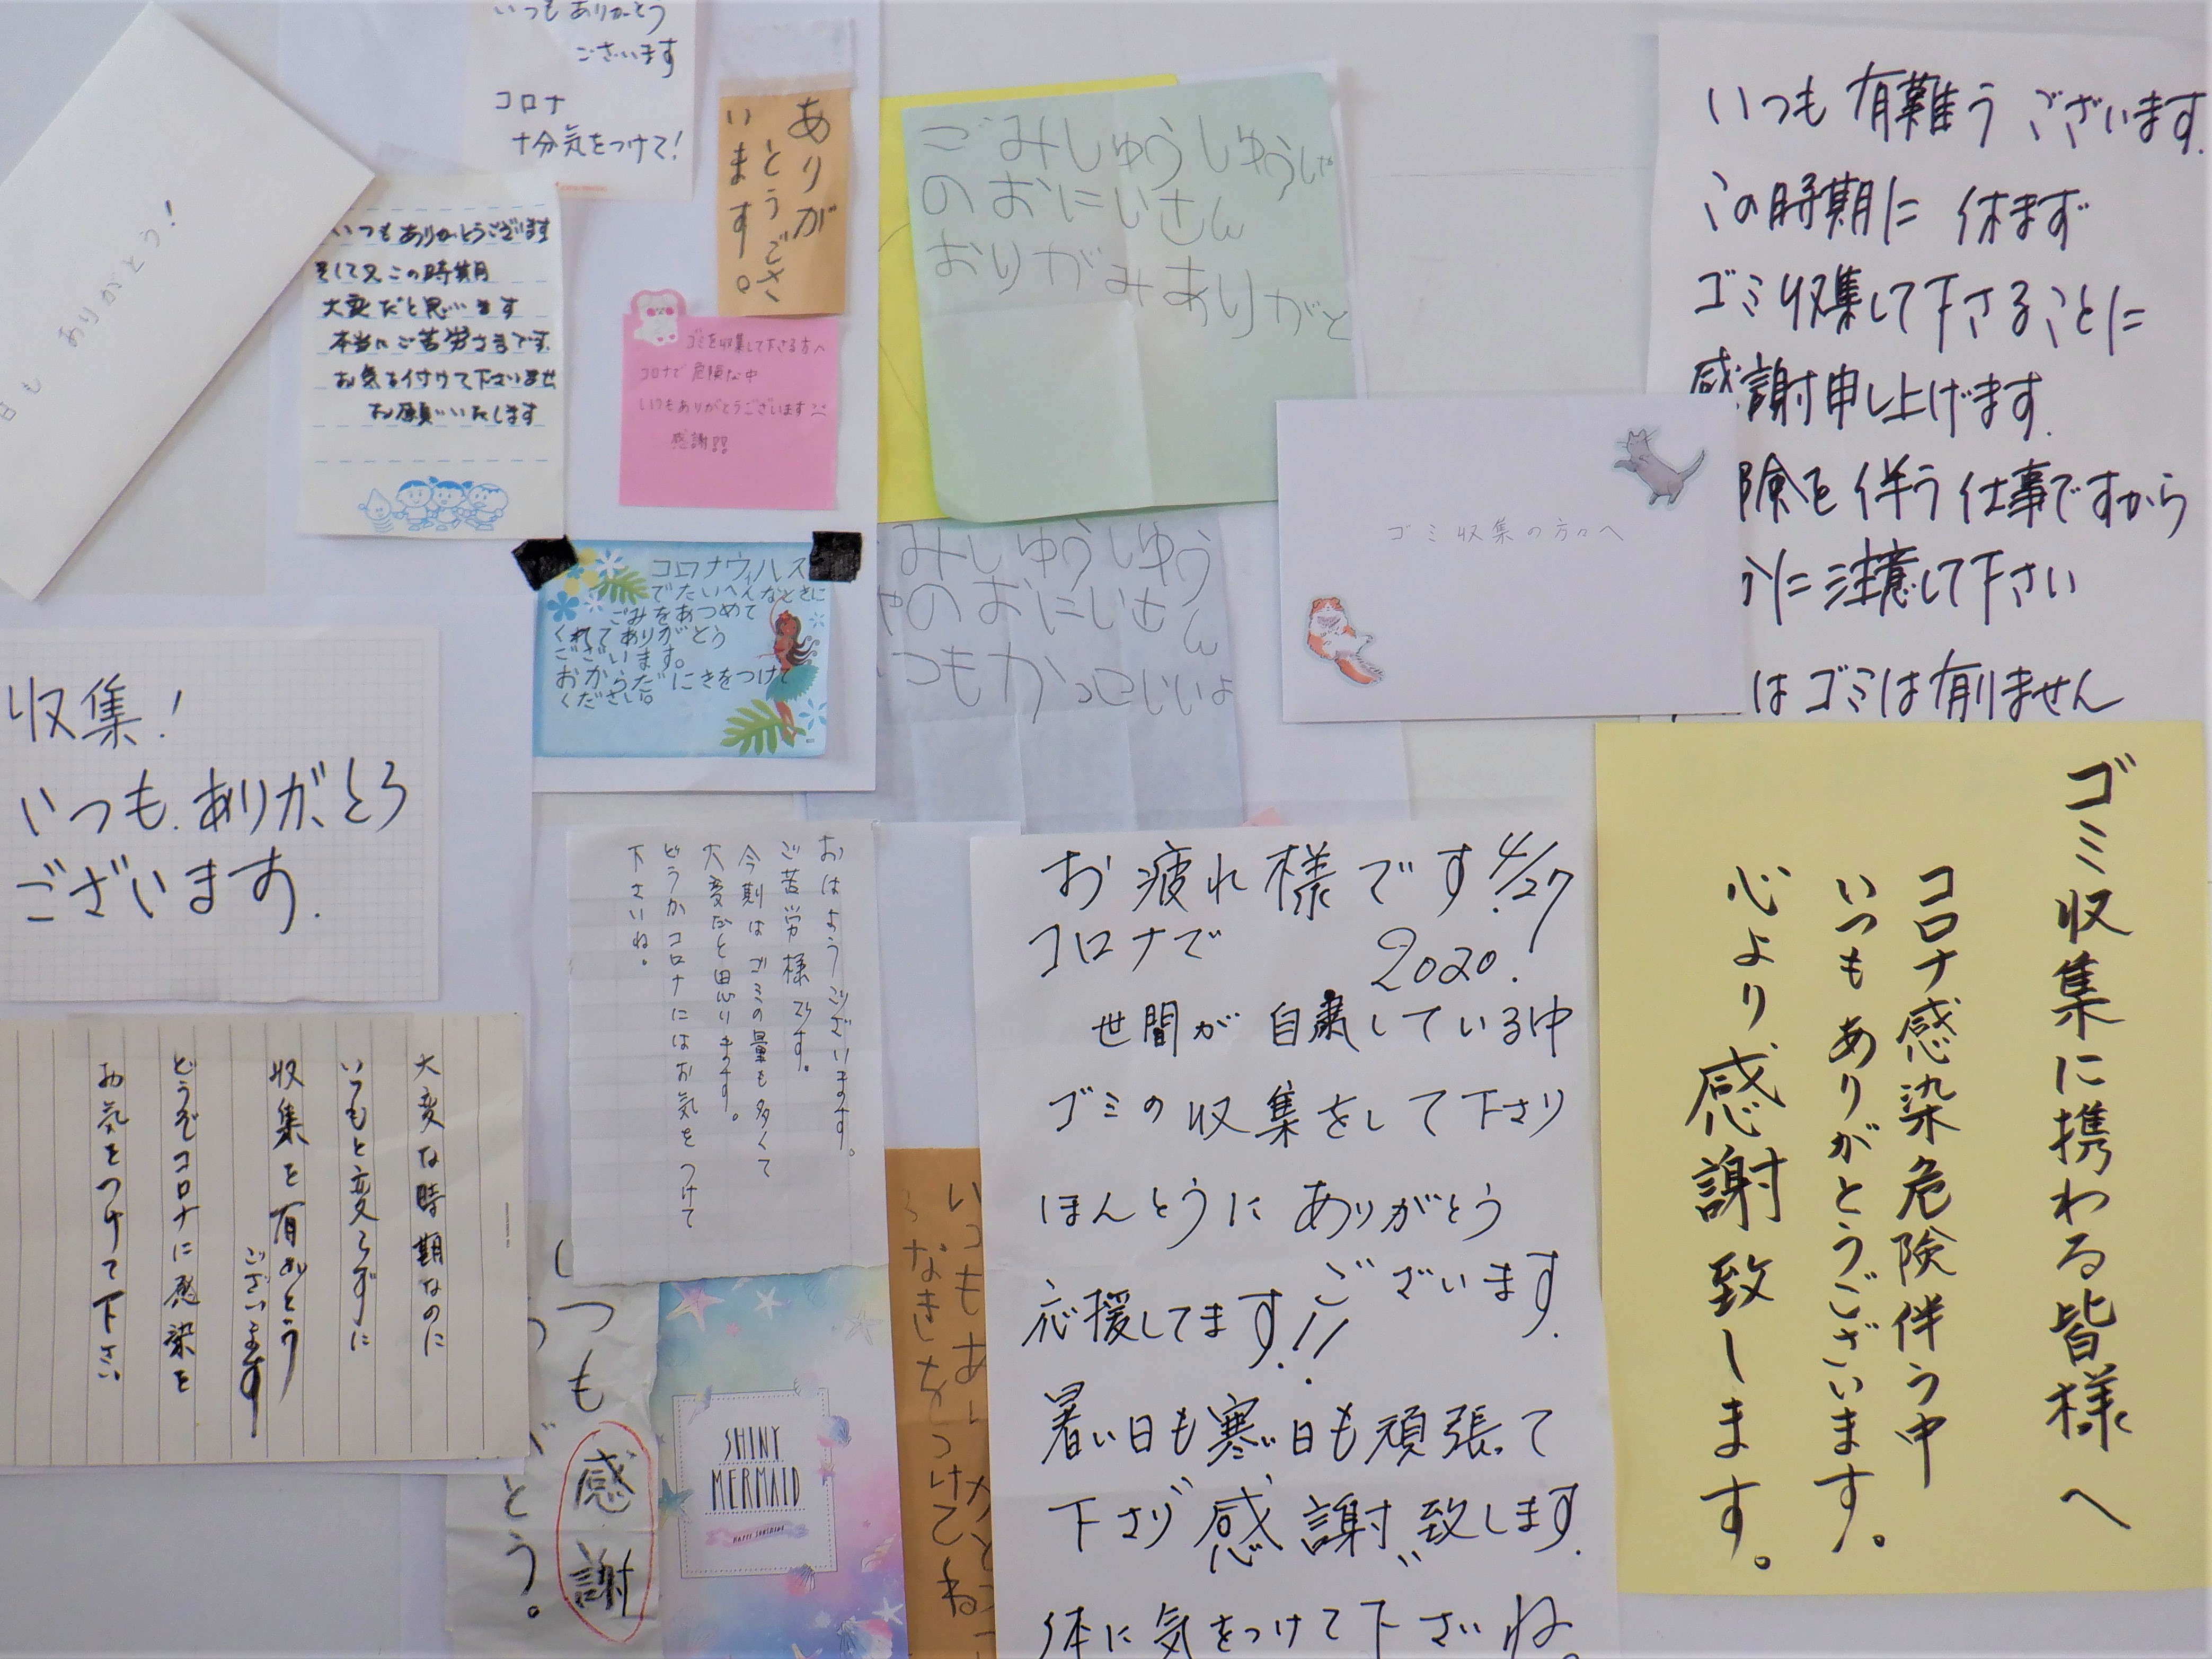 いつもありがとう
ございます
コロナ
十分気をつけて!
ありがとう!
いつもありがとうございます
そして又この時期
大変だと思います
本当にご苦労さまです
お気を付けて下さいませ
お願いいたします
ありが
とうござ
います。
ゴミを収集して下さる方へ
コロナで危険な中
いつもありがとうございます
感謝!!
ごみしゅうしゅうしゃ
のおにいさん
おりがみありがと
みしゅうしゅう
ゃのおにいさん
つもかっこいいよ
コロナウィルス
でたいへんなときに
ごみをあつめて
くれてありがとう
ございます。
おからだにきをつけて
ください。
ゴミ収集の方々へ
いつも有難うございます.
この時期に休まず
ゴミ収集して下さることに
感謝申し上げます.
険を伴う仕事ですから
に注意して下さい
はゴミは有りません
収集!
いつもありがとう
ございます.
大変な時期なのに
いつもと変らずに
収集を有がとう
ございます
どうぞコロナに感染を
お気をつけて下さい
おはようございます。
ご苦労様です。
今期はゴミの量も多くて
大変だと思います。
どうかコロナにはお気をつけて
下さいね。
いつも
とう。
感謝
SHINY
MERMAID
HAPPY SUNSHINE
いつもあ
なきをつけてね
お疲れ様です! 4/27
コロナで 2020.
世間が自粛している中
ゴミの収集をして下さり
ほんとうにありがとう
ございます.
応援してます!!
暑い日も寒い日も頑張って
下さり感謝致します.
体に気をつけて下さいね。
ゴミ収集に携わる皆様へ
コロナ感染危険伴う中
いつもありがとうございます。
心より感謝致します。